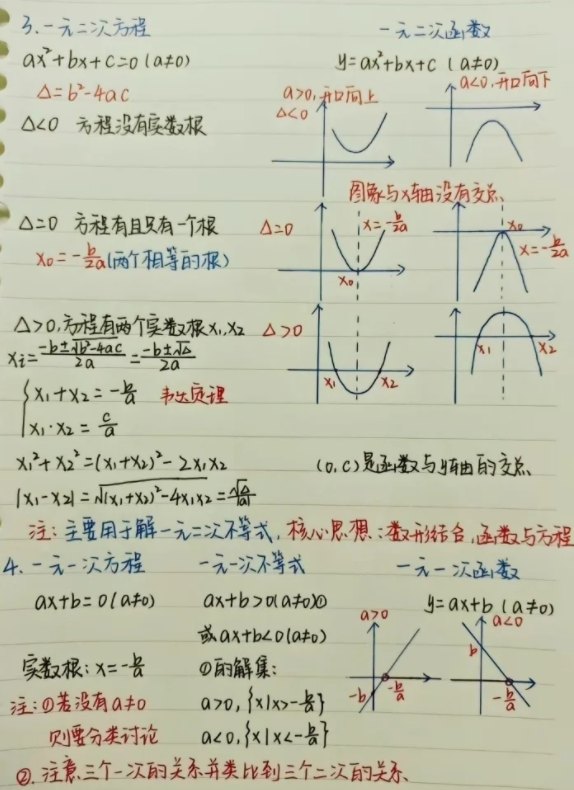 3.一元二次方程
一元二次函数
ax²+bx+c=0 (a≠0)
y=ax²+bx+c (a≠0)
Δ=b²-4ac
a>0,开口向上
a<0,开口向下
Δ<0 方程没有实数根
Δ<0
图象与x轴没有交点
Δ=0 方程有且只有一个根
Δ=0
x=-b/2a
x₀
x₀
x=-b/2a
x₀=-b/2a(两个相等的根)
Δ>0,方程有两个实数根x₁,x₂
Δ>0
x₁ x₂
x₁ x₂
xᵢ=(-b±√(b²-4ac))/2a=(-b±√Δ)/2a
{x₁+x₂=-b/a 韦达定理
x₁·x₂=c/a
x₁²+x₂²=(x₁+x₂)²-2x₁x₂
(0,c)是函数与y轴的交点
|x₁-x₂|=√((x₁+x₂)²-4x₁x₂)=√Δ/|a|
注:主要用于解一元二次不等式,核心思想:数形结合,函数与方程
4.一元一次方程 一元一次不等式 一元一次函数
ax+b=0(a≠0) ax+b>0(a≠0)① y=ax+b (a≠0)
a>0
a<0
或ax+b<0(a≠0)
实数根:x=-b/a ①的解集:
b
-b
-b/a
-b/a
注:①若没有a≠0 a>0,{x|x>-b/a}
则要分类讨论 a<0,{x|x<-b/a}
②.注意三个一次的关系并类比到三个二次的关系.